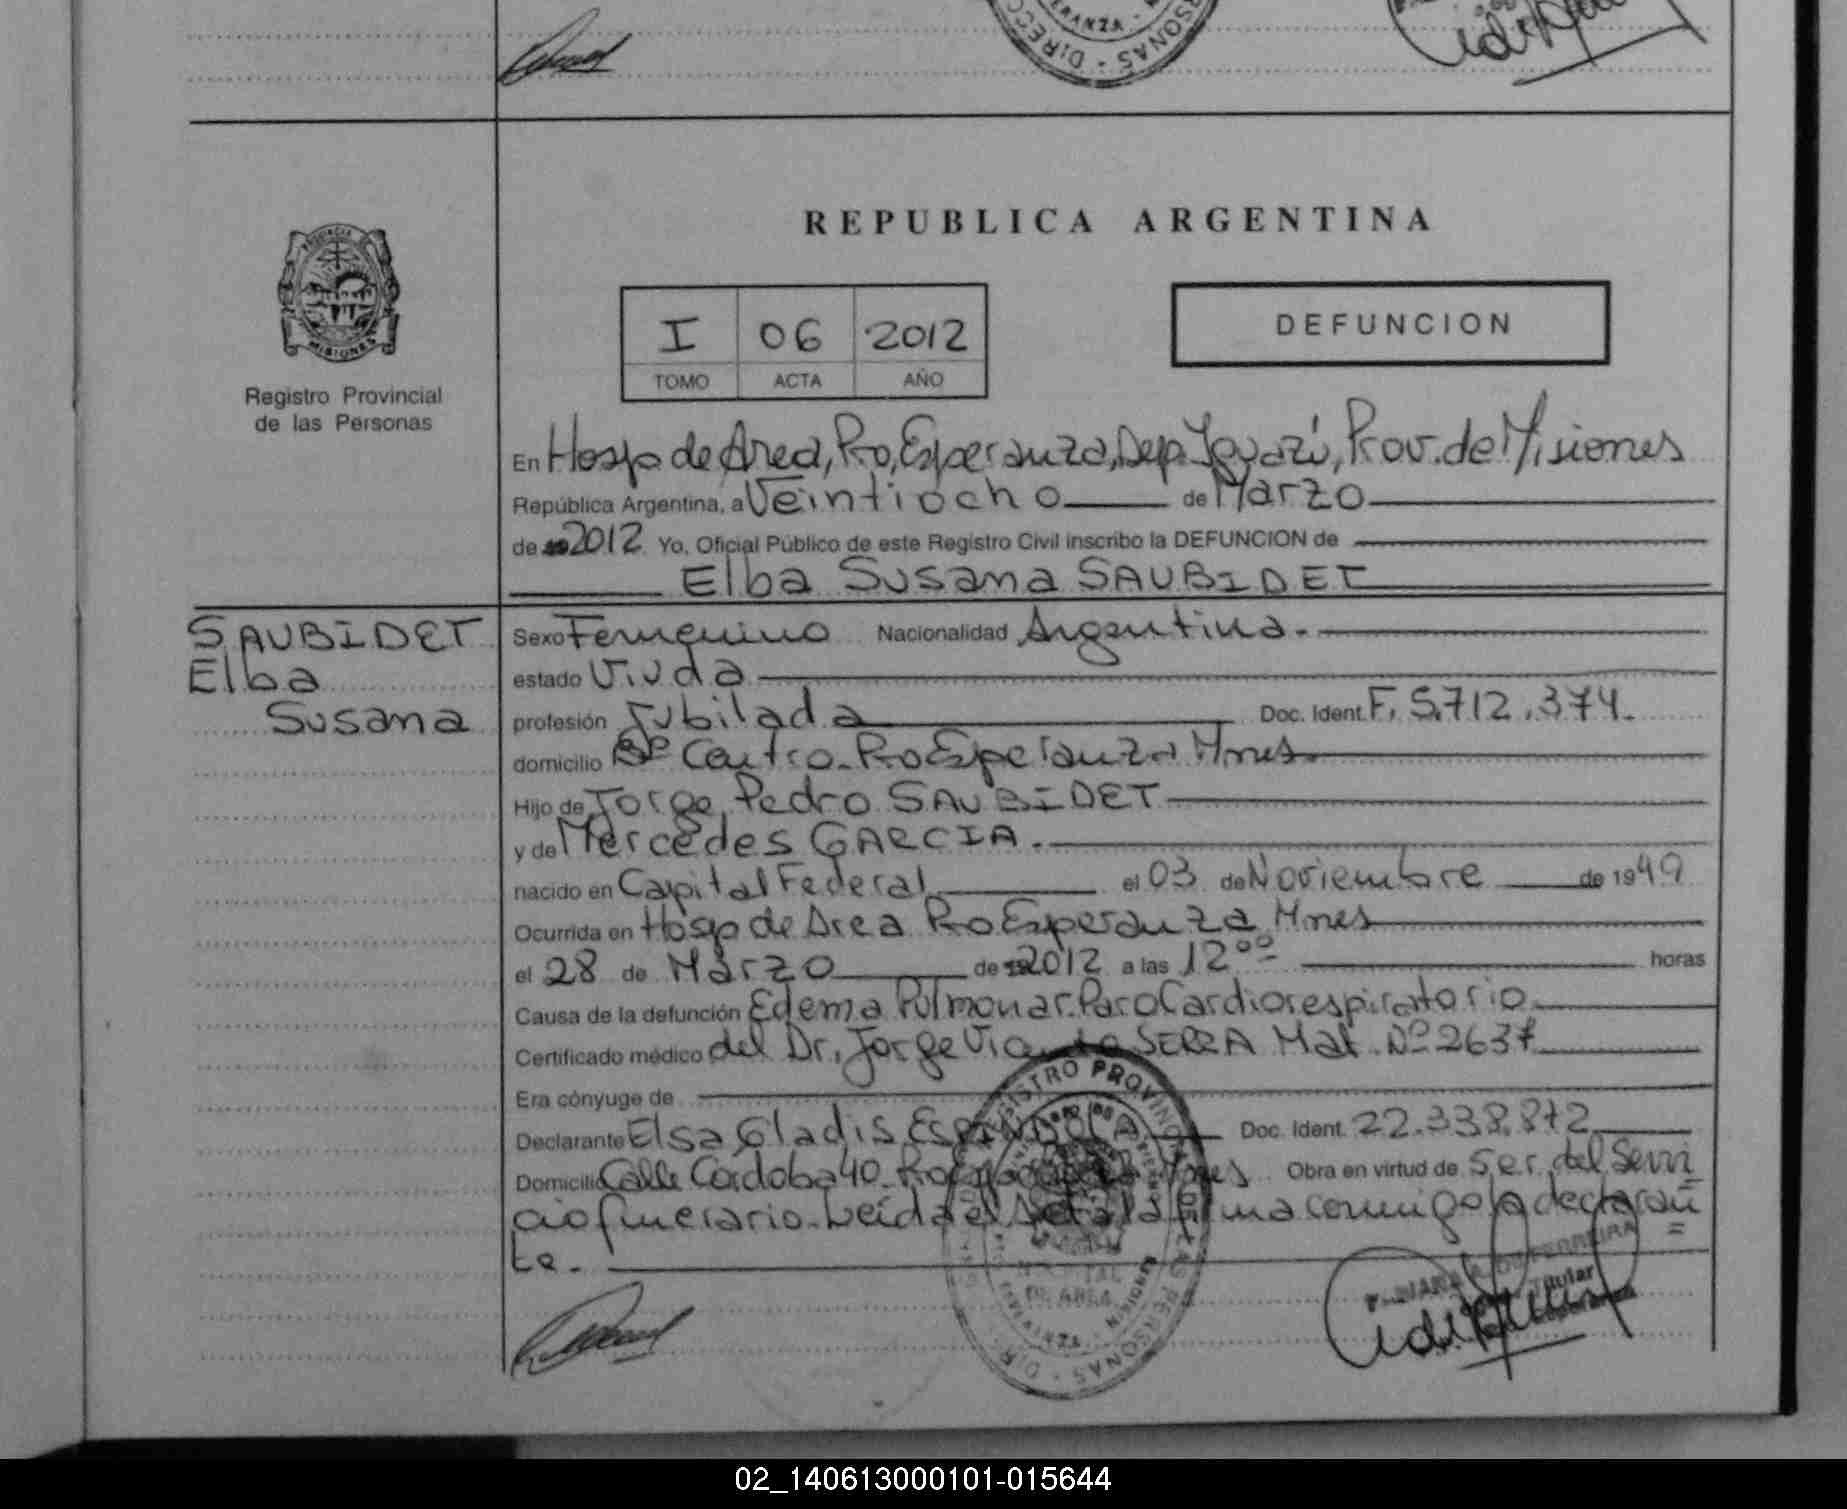 REPUBLICA ARGENTINA
PROVINCIA DE
MISIONES
Registro Provincial
de las Personas
I 06 2012
TOMO ACTA AÑO
DEFUNCION
En Hosp de Area, Pto, Esperanza, Dep. Iguazú, Prov. de Misiones
República Argentina, a Veintiocho de Marzo
de 2012 Yo, Oficial Público de este Registro Civil inscribo la DEFUNCION de
Elba Susana SAUBIDET
SAUBIDET
Elba
Susana
Sexo Femenino Nacionalidad Argentina.
estado Viuda
profesión Jubilada Doc. Ident. F. 5.712.374.
domicilio Bº Centro - Pto Esperanza Mnes.
Hijo de Jorge Pedro SAUBIDET
y de Mercedes GARCIA.
nacido en Capital Federal el 03 de Noviembre de 1949
Ocurrida en Hosp de Area Pto Esperanza Mnes
el 28 de Marzo de 2012 a las 12ºº horas
Causa de la defunción Edema Pulmonar. Paro Cardiorespiratorio
Certificado médico del Dr. Jorge Vicente SERRA Mat. Nº 2637
Era cónyuge de
Declarante Elsa Gladis ESPINDOLA Doc. Ident. 22.338.872
Domicilio Calle Cordoba 40 - Pto Esperanza Mnes Obra en virtud de Ser del Servi
cio funerario. Leída el Acta la firma conmigo la declaran
te.
REGISTRO PROVINCIAL DE LAS PERSONAS
HOSPITAL
DE AREA
DE FERREIRA
Titular
02_140613000101-015644